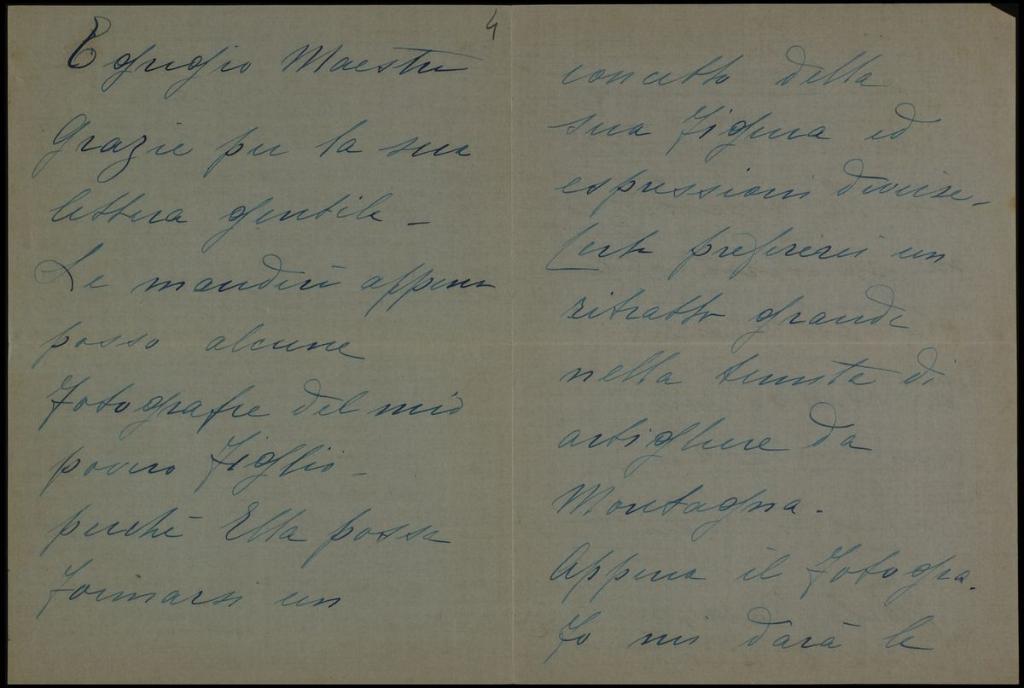 4
Egregio Maestro
Grazie per la sua
lettera gentile –
Le manderò appena
posso alcune
fotografie del mio
povero figlio –
perchè Ella possa
formarsi un
concetto della
sua figura ed
espressioni diverse –
Certo preferirei un
ritratto grande
nella tenuta di
artigliere da
Montagna.
Appena il fotogra-
fo mi darà le